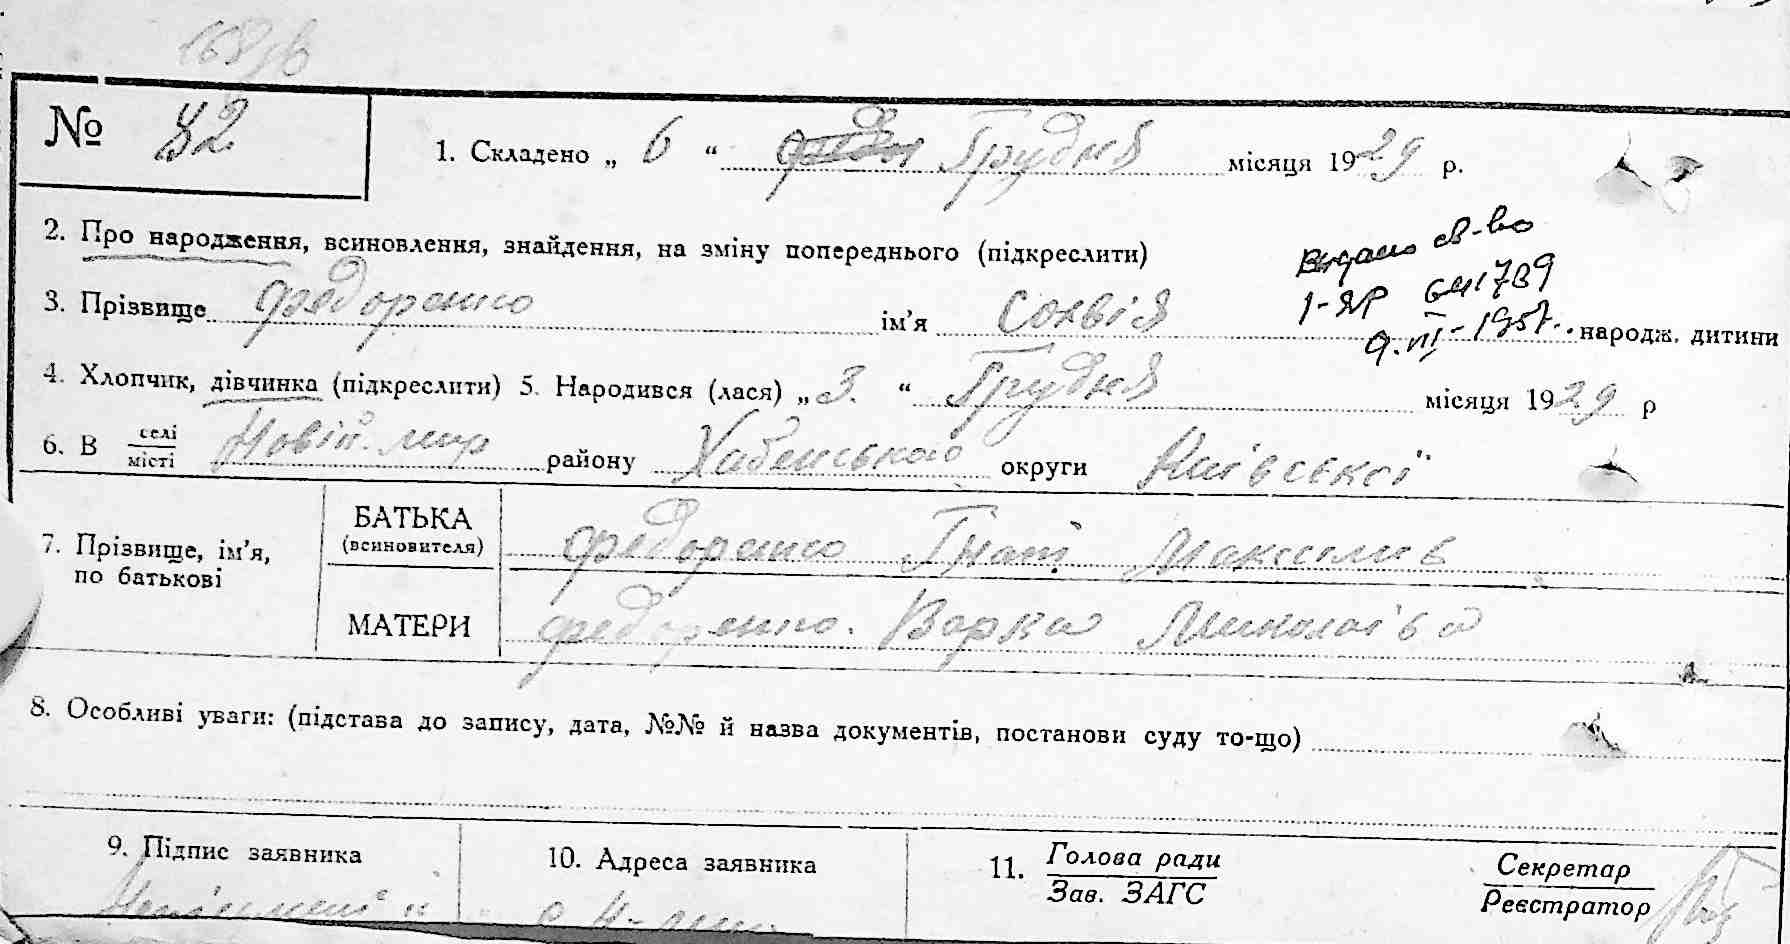 № 82
1. Складено „ 6 “ Грудня місяця 1929 р.
2. Про народження, всиновлення, знайдення, на зміну попереднього (підкреслити)
Видано св-во
1-ЯР 641789
9.III-1957.
3. Прізвище Федоренко ім’я Сохвія народж. дитини
4. Хлопчик, дівчинка (підкреслити) 5. Народився (лася) „ 3. “ Грудня місяця 1929 р
6. В селі місті Новій. мир району Хабенського округи Київської
7. Прізвище, ім’я, по батькові
БАТЬКА (всиновителя) Федоренко Гнат Максимів
МАТЕРИ Федоренко. Варка Миколаівна
8. Особливі уваги: (підстава до запису, дата, №№ й назва документів, постанови суду то-що)
9. Підпис заявника 10. Адреса заявника 11. Голова ради Секретар
Зав. ЗАГС Реєстратор
Неписьменій